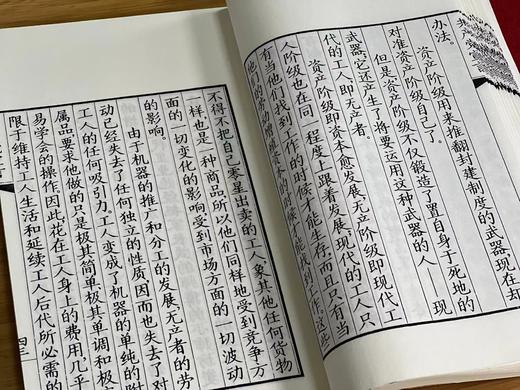 办法。
资产阶级用来推翻封建制度的武器现在却
对准资产阶级自己了。
但是资产阶级不仅锻造了置自身于死地的
武器它还产生了将要运用这种武器的人——现
代的工人即无产者。
资产阶级即资本愈发展无产阶级即现代工
人阶级也在同一程度上跟着发展现代的工人只
有当他们找到工作的时候才能生存而且只有当
他们的劳动增殖资本的时候才能找到工作这些
不得不把自己零星出卖的工人象其他任何货物
一样也是一种商品所以他们同样地受到竞争方
面的一切变化的影响受到市场方面的一切波动
的影响。
由于机器的推广和分工的发展无产者的劳
动已经失去了任何独立的性质因而也失去了对
工人的任何吸引力工人变成了机器的单纯的附
属品要求他做的只是极其简单极其单调和极
易学会的操作因此花在工人身上的费用，几乎
限于维持工人生活和延续工人后代所必需的
四三